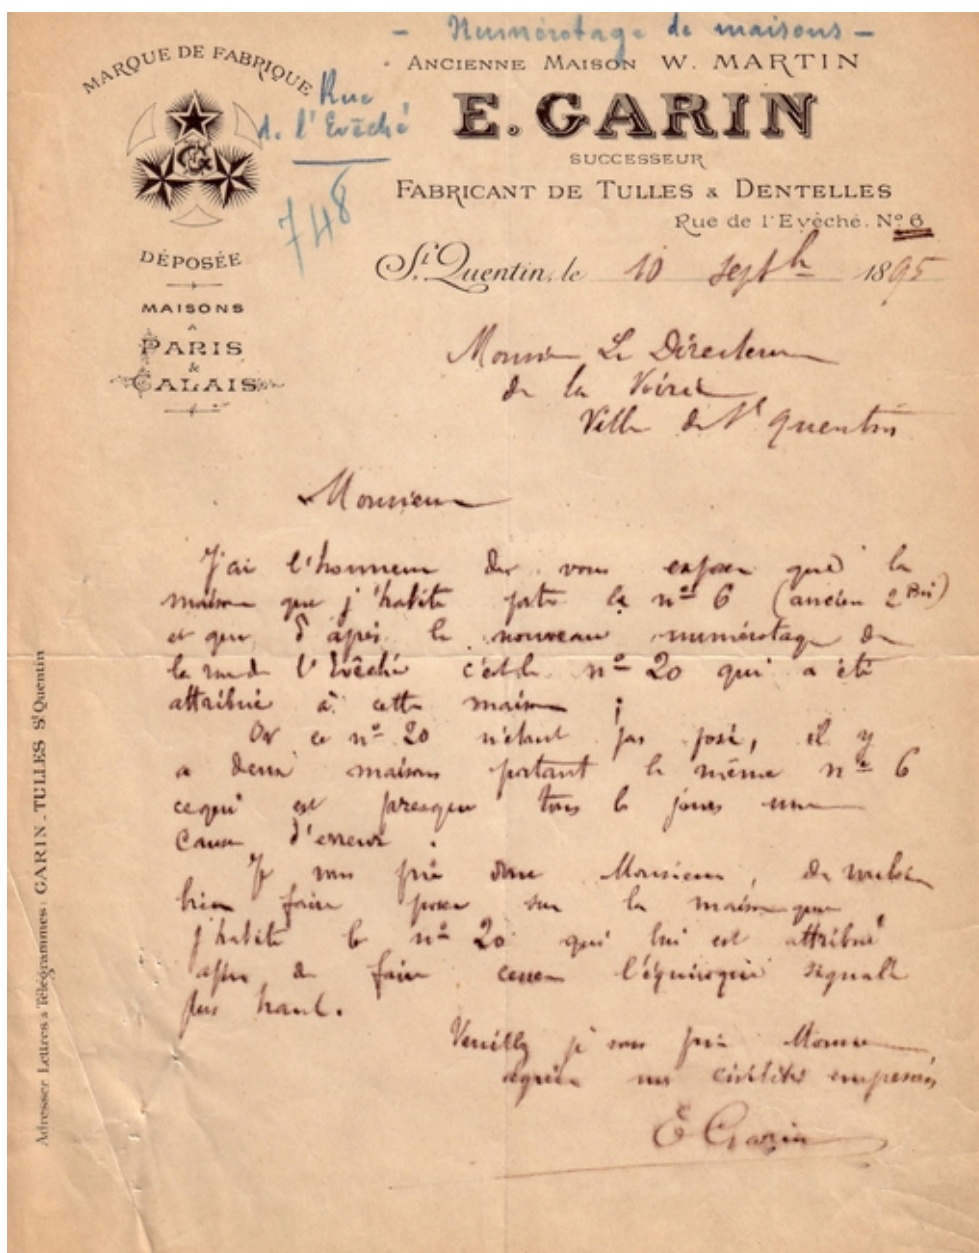 - Numérotage de maisons -
Rue
de l'Evêché
748
MARQUE DE FABRIQUE
DÉPOSÉE
MAISONS
A
PARIS
&
CALAIS
ANCIENNE MAISON W. MARTIN
E. GARIN
SUCCESSEUR
FABRICANT DE TULLES & DENTELLES
Rue de l'Evêché. Nº 6
St. Quentin, le 10 septbre 1895
Monsieur Le Directeur
de la Voirie
Ville de St Quentin
Monsieur
J'ai l'honneur de vous exposer que la
maison que j'habite porte le nº 6 (ancien 2 Bis)
et que d'après le nouveau numérotage de
la rue de l'Evêché c'est le nº 20 qui a été
attribué à cette maison ;
Or ce nº 20 n'étant pas posé, il y
a deux maisons portant le même nº 6
ce qui est presque tous les jours une
cause d'erreur.
Je vous prie donc Monsieur, de vouloir
bien faire poser sur la maison que
j'habite le nº 20 qui lui est attribué
afin de faire cesser l'équivoque signalé
plus haut.
Veuillez je vous prie Monsieur
agréer mes civilités empressées
E Garin
Adresser Lettres & Télégrammes: GARIN_TULLES St Quentin